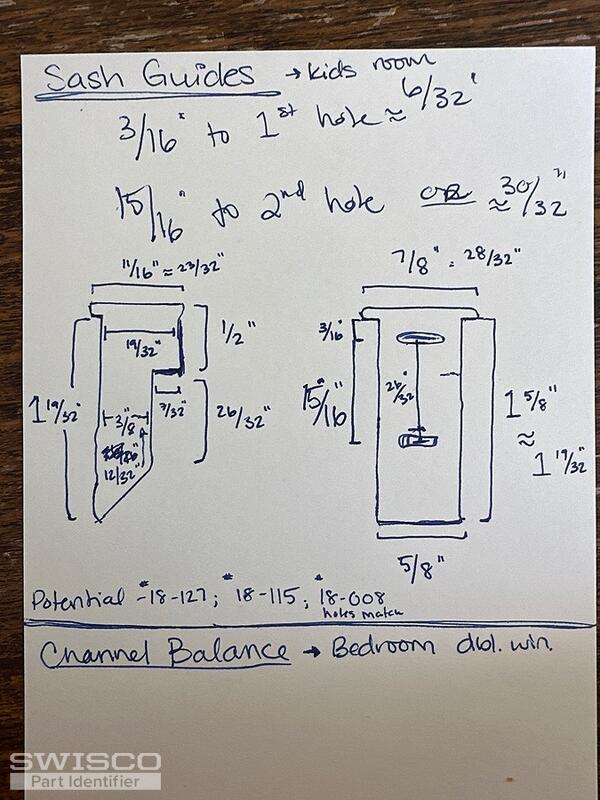 Sash Guides → kids room
3/16" to 1st hole ≈ 6/32"
15/16" to 2nd hole or ≈ 30/32"
11/16" ≈ 23/32"
19/32"
1/2"
1 19/32"
3/8"
7/32"
26/32"
12/32"
7/8" = 28/32"
3/16"
15/16"
26/32"
1 5/8"
≈
1 19/32"
5/8"
Potential - #18-127; #18-115; #18-008
holes match
Channel Balance → Bedroom dbl. win.
SWISCO
Part Identifier